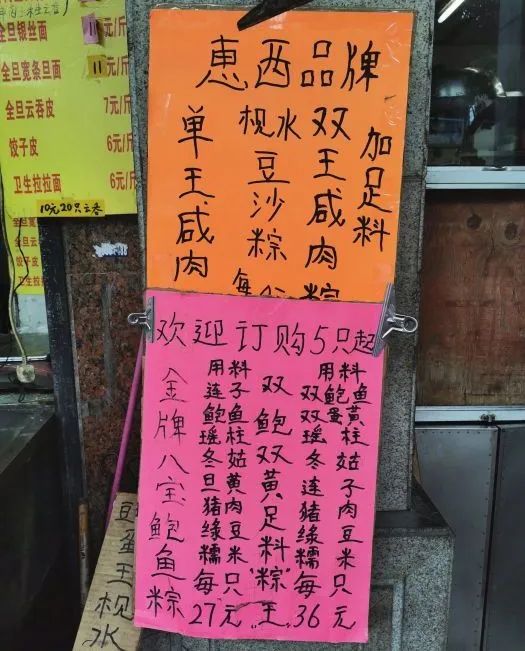 全旦银丝面 11元/斤
全旦宽条旦面 11元/斤
全旦云吞皮 7元/斤
饺子皮 6元/斤
卫生拉拉面 6元/斤
10元20只云吞
全旦宽
全旦云
饺子皮
卫生拉
惠西品牌
加足料
双王咸肉粽
枧水
豆沙粽
每
单王咸肉
欢迎订购5只起
金牌八宝鲍鱼粽
用料
莲子
鲍鱼
瑶柱
冬菇
旦黄
猪肉
绿豆
糯米
每只
27元
双鲍双黄足料"粽"王
用料
双鲍鱼
双蛋黄
瑶柱
冬菇
莲子
猪肉
绿豆
糯米
每只
36元
蛋王枧水